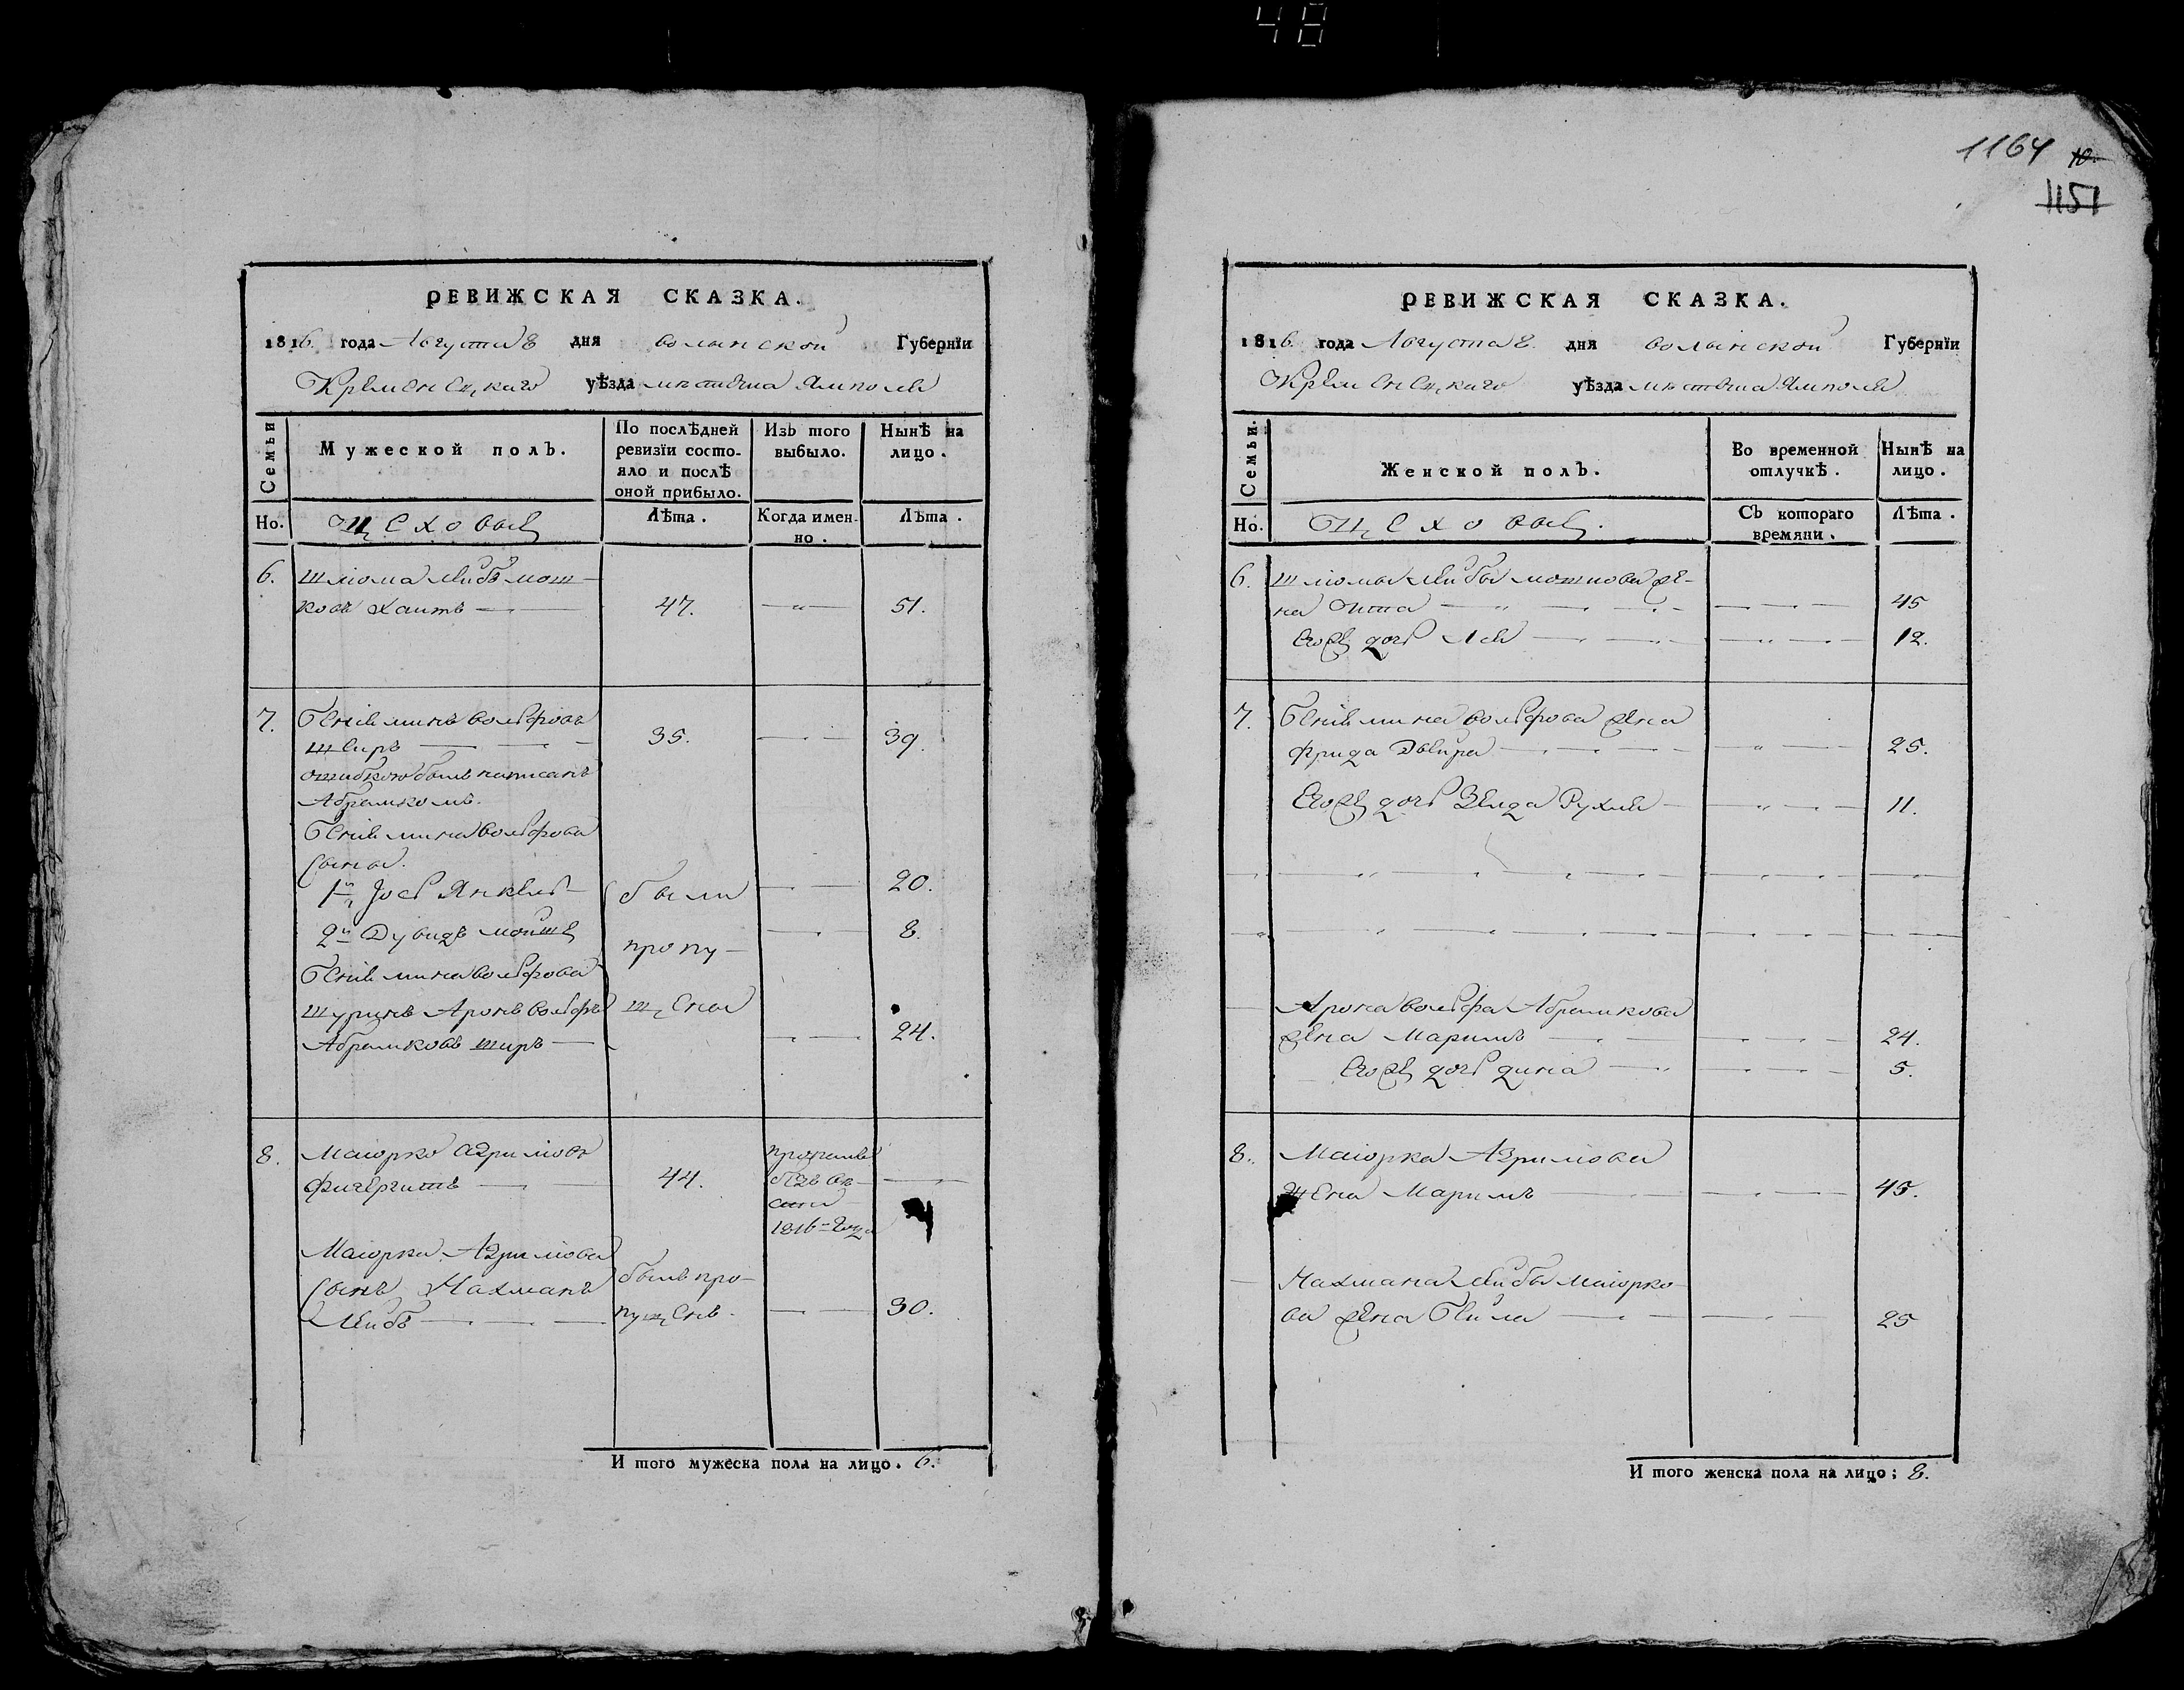 48
РЕВИЖСКАЯ СКАЗКА.
1816. года Августа 8 дня волынской Губернїи
Кременецкаго уѣзда местечка Ямполя
Семьи
Мужеской полъ.
По послѣдней ревизїи состояло и послѣ оной прибыло.
Изъ того выбыло.
Нынѣ на лицо.
Но.
Цеховые
Лѣта.
Когда именно.
Лѣта.
6. Шлиома Лейбъ мош-
ковъ Хаитъ 47. 51.
7. Бениминъ вольфовъ
Шеиръ 35. 39.
ошибкою былъ написанъ
Абрамкомъ.
Бенимина вольфова
сыны.
1й Јось Янкель 20.
были
2й Дувидъ мойше 8.
пропу-
Бенимина вольфова
шуринъ Аронъ вольфъ щены
Абрамковъ ширъ 24.
8. Маиорко Азриловъ
44.
1816 года
Маиорка Азрилова
сынъ Нахманъ былъ про-
Лейбъ пущенъ. 30.
И того мужеска пола на лицо. 6.
1164 10.
1151
РЕВИЖСКАЯ СКАЗКА.
1816. года Августа 8. дня волынской Губернїи
Кременецкаго уѣзда местечка Ямполя
Семьи.
Женской полъ.
Во временной отлучкѣ.
Нынѣ на лицо.
Но.
Цеховые.
Съ котораго времяни.
Лѣта.
6. Шлиомы Лейбы мошкова же-
на Гитта 45
Егоже дочь Лея 12.
7. Бенимина вольфова жена
Фрида Двейра 25.
Егоже дочь Зелда Рухля 11.
Арона вольфа Абрамкова
жена Маримъ 24.
Егоже дочь дина 5.
8. Маиорка Азрилова
Жена Маримъ 45.
Нахмана Лейбы Маиорко-
ва жена Бейла 25
И того женска пола на лицо; 8.